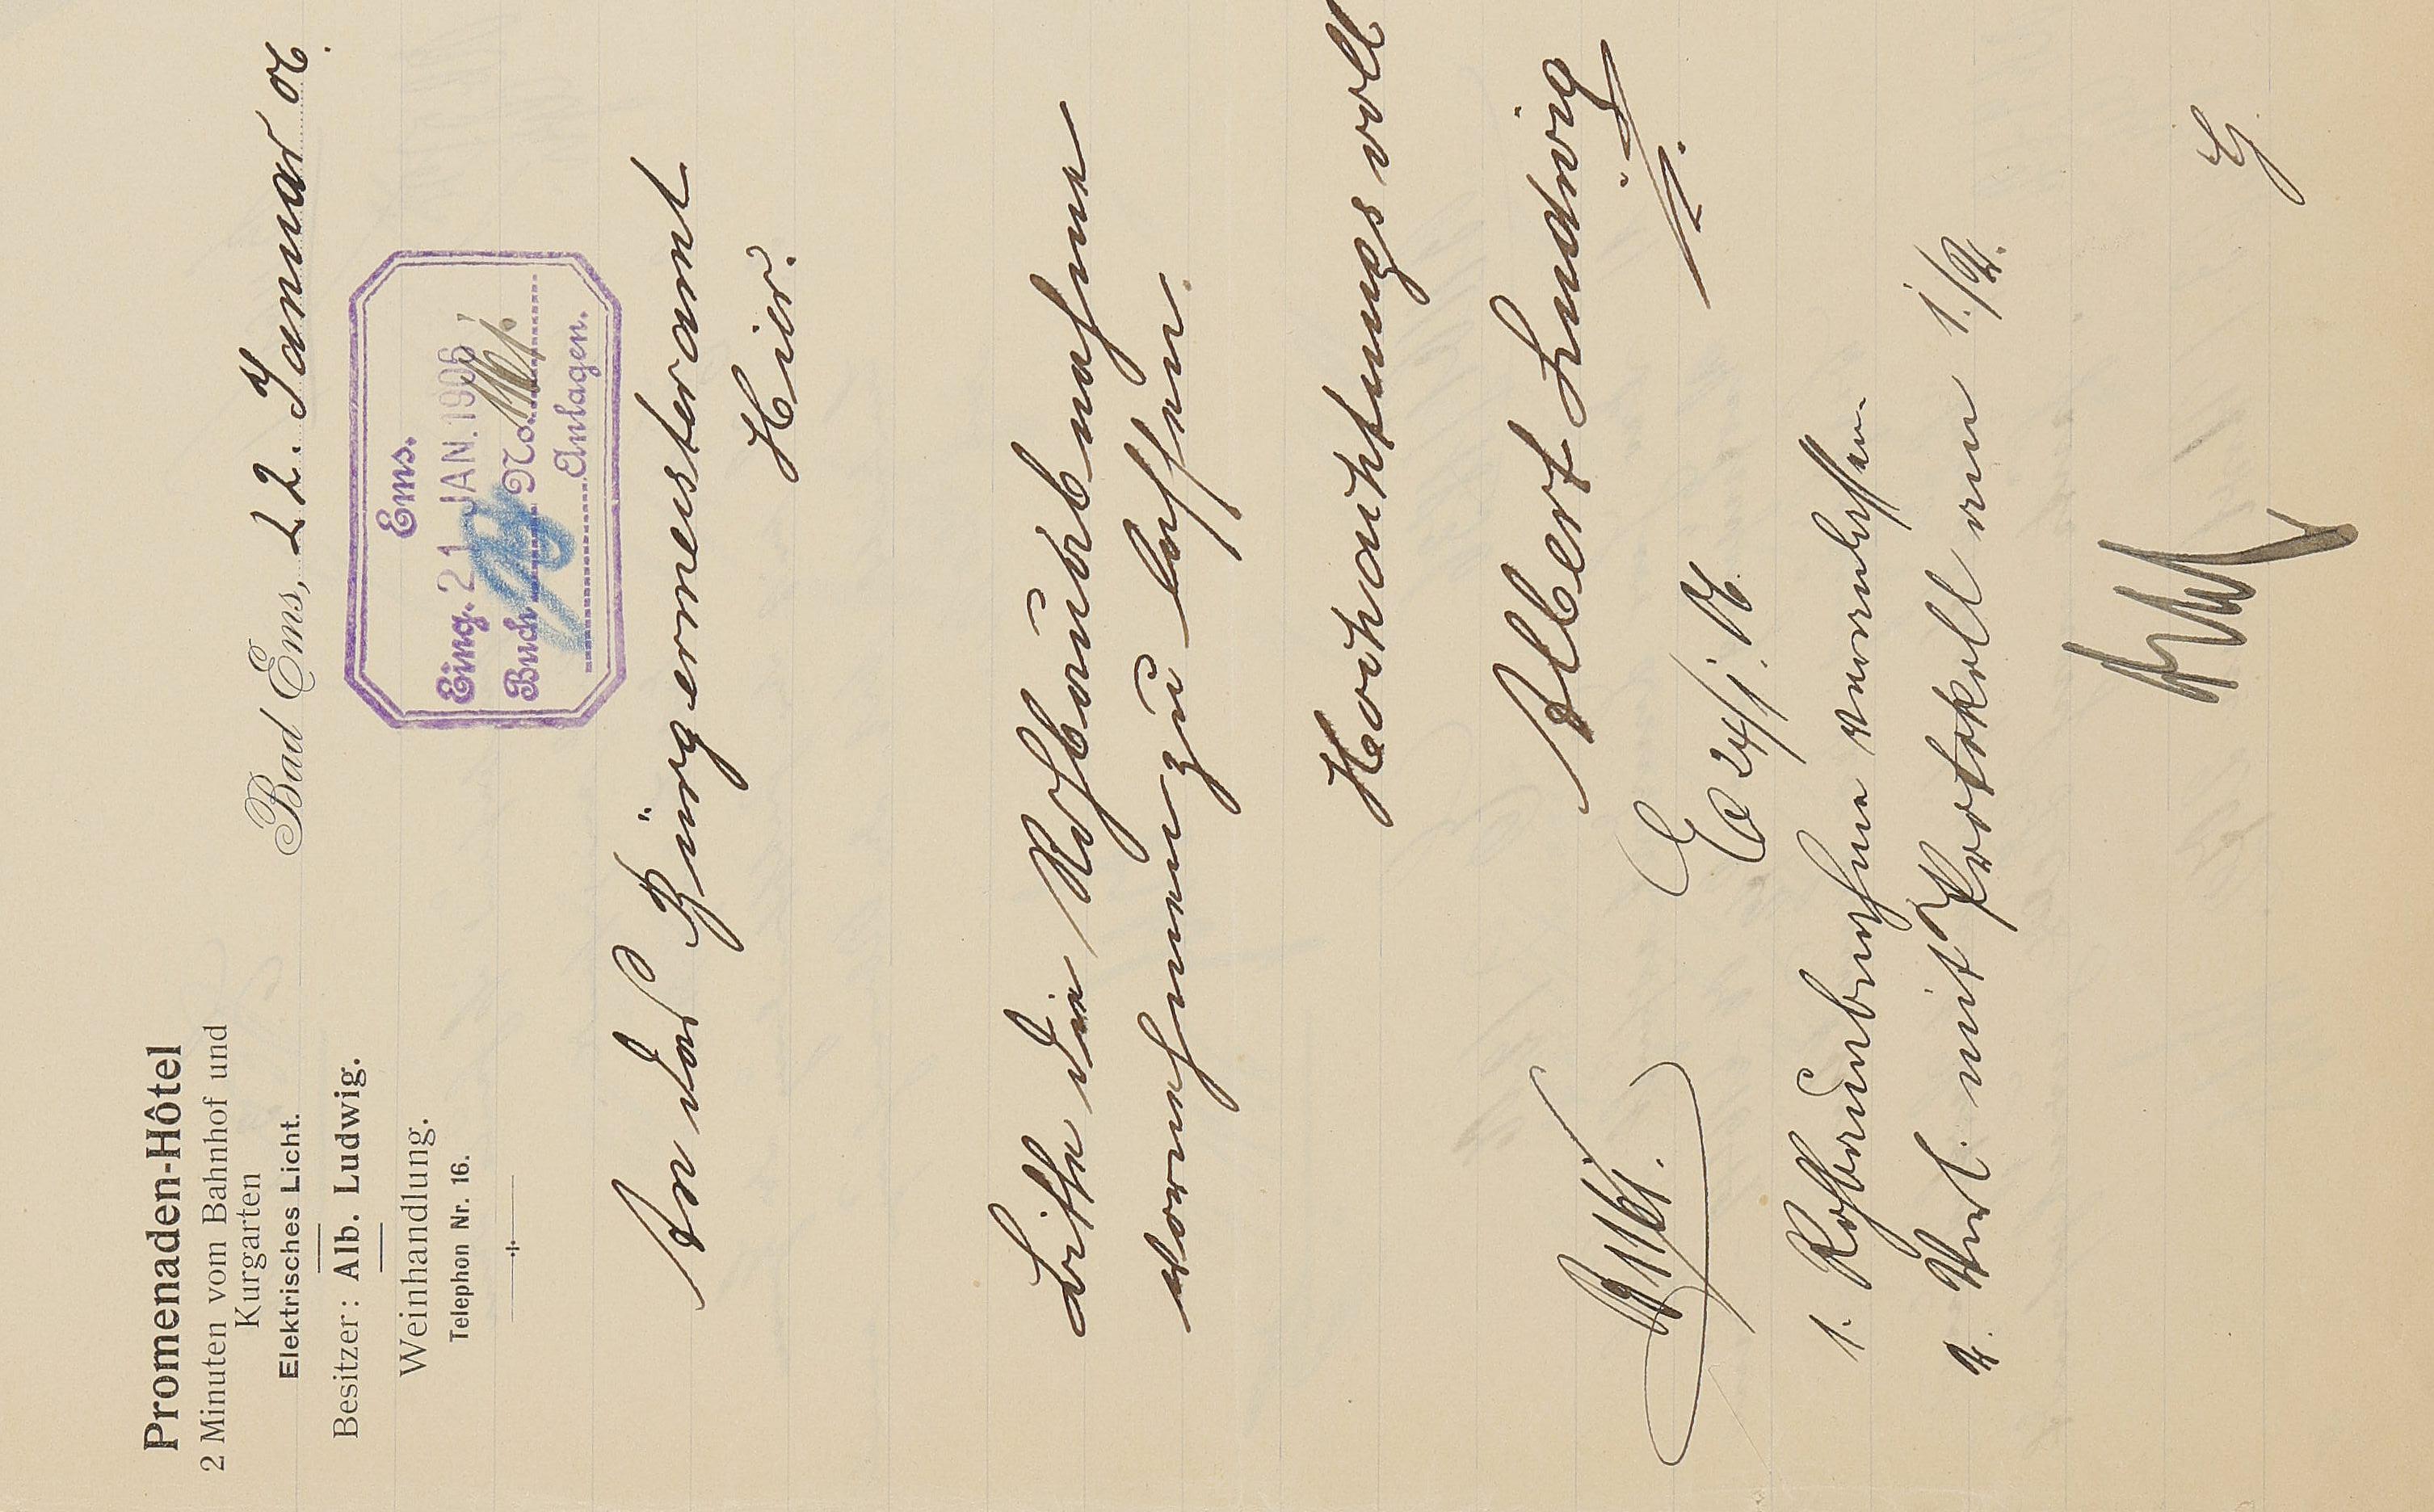 Promenaden-Hôtel
2 Minuten vom Bahnhof und
Kurgarten
Elektrisches Licht.
Besitzer: Alb. Ludwig.
Weinhandlung.
Telephon Nr. 16.
Bad Ems, 22. Januar 06.
Ems.
Eing. 21 JAN. 1906
Buch No.
Anlagen.
An das Bürgermeisteramt
Hier.
Bitte die Rohbauabnahme
vornehmen zu lassen.
Hochachtungsvoll
Albert Ludwig
E 24/1. 06.
1. Rohbauabnahme veranlassen.
2. Urk. mit Protokoll am 1./2.